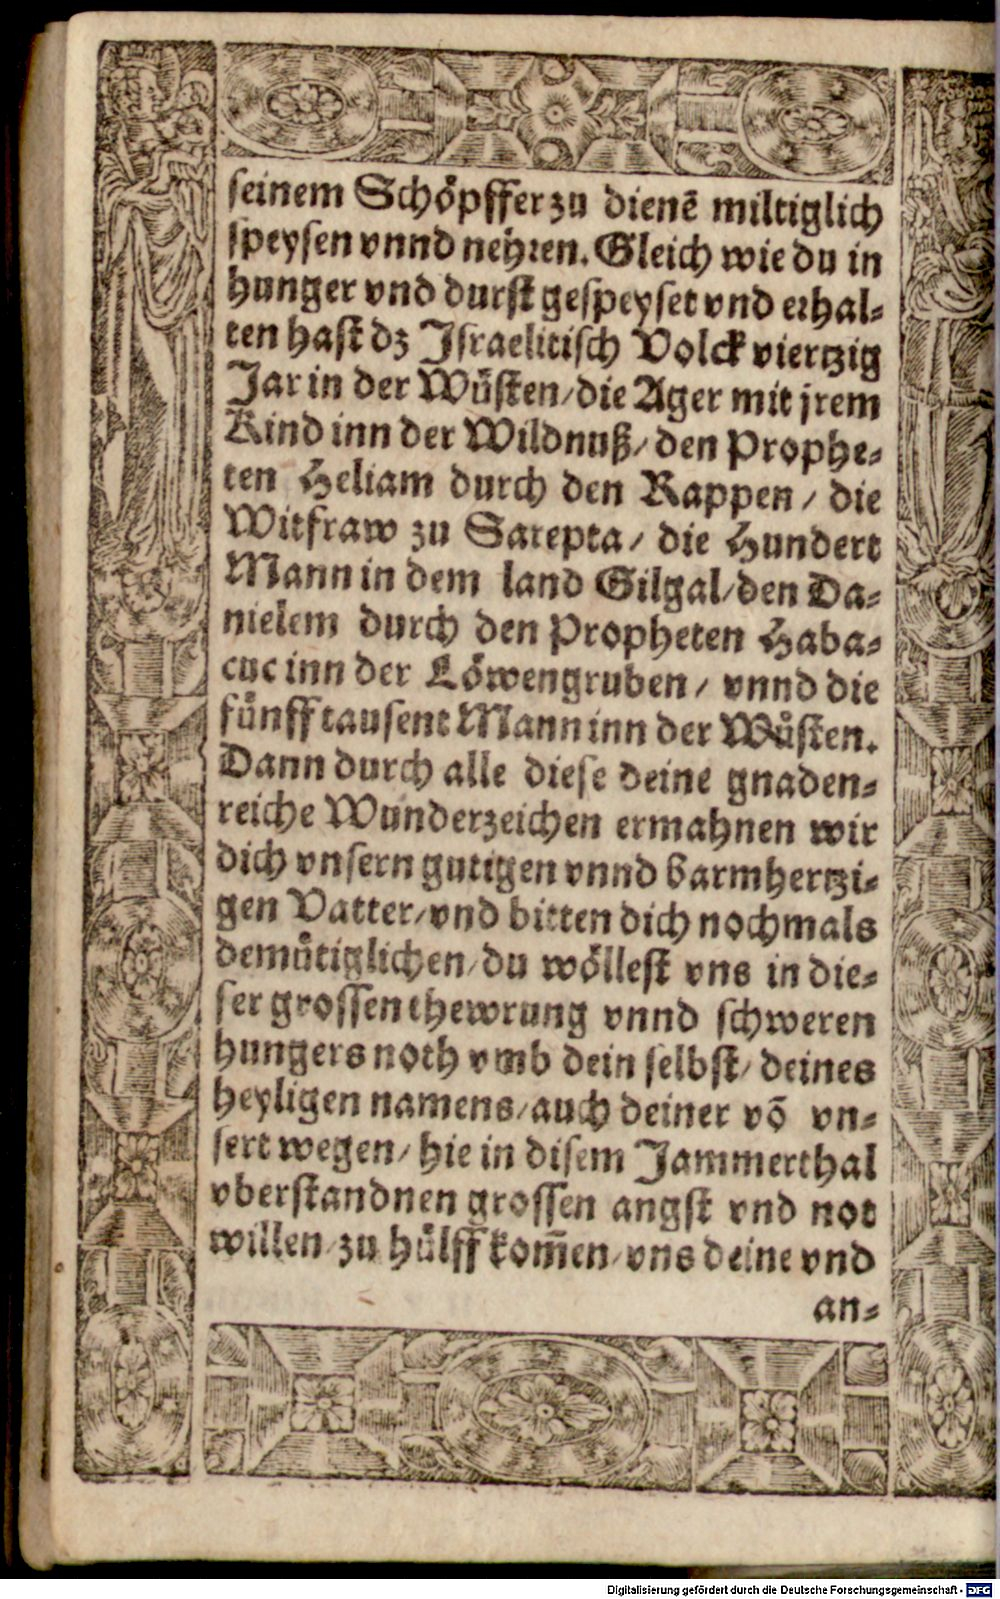 seinem Schöpffer zu dienē miltiglich
speysen vnnd nehren. Gleich wie du in
hunger vnd durst gespeyset vnd erhal=
ten hast dz Israelitisch Volck viertzig
Jar in der Wüsten/die Ager mit jrem
Kind inn der Wildnuß/ den Prophe=
ten Heliam durch den Rappen / die
Witfraw zu Sarepta/ die Hundert
Mann in dem land Gilgal/den Da=
nielem durch den Propheten Haba=
cuc inn der Löwengruben/ vnnd die
fünff tausent Mann inn der Wüsten.
Dann durch alle diese deine gnaden=
reiche Wunderzeichen ermahnen wir
dich vnsern gutigen vnnd barmhertzi=
gen Vatter/vnd bitten dich nochmals
demütiglichen/du wöllest vns in die=
ser grossen thewrung vnnd schweren
hungers noth vmb dein selbst/ deines
heyligen namens/auch deiner võ vn=
sert wegen/ hie in disem Jammerthal
vberstandnen grossen angst vnd not
willen/zu hülff kom̄en/vns deine vnd
an=
Digitalisierung gefördert durch die Deutsche Forschungsgemeinschaft - DFG